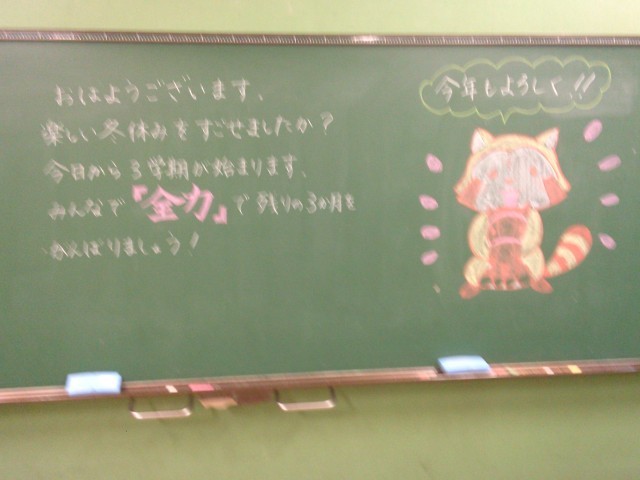 おはようございます、
楽しい冬休みをすごせましたか?
今日から3学期が始まります、
みんなで『全力』で残りの3か月を
がんばりましょう!
今年もよろしく、!!